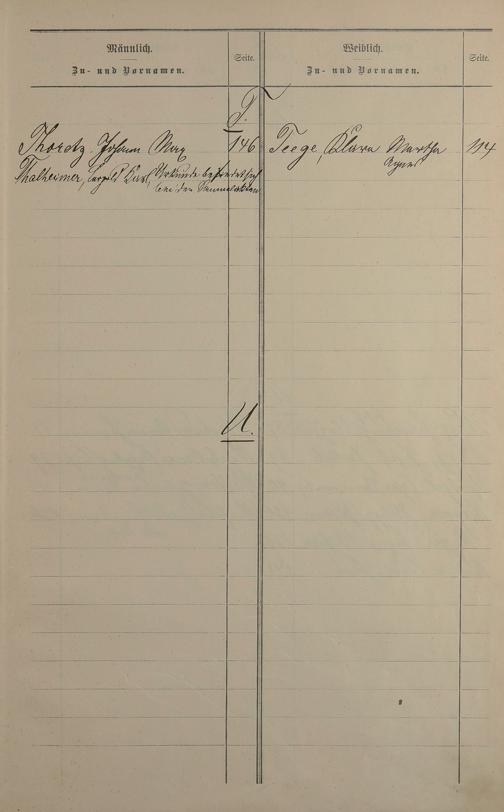 Männlich.
Zu- und Vornamen.
Seite.
Weiblich.
Zu- und Vornamen.
Seite.
T.
Thoretz, Johann Max 146
Thalheimer, Leopold Karl, Urkunde befindet sich
bei den Sammelakten
Teege, Klara Martha 114
Agnes
U.